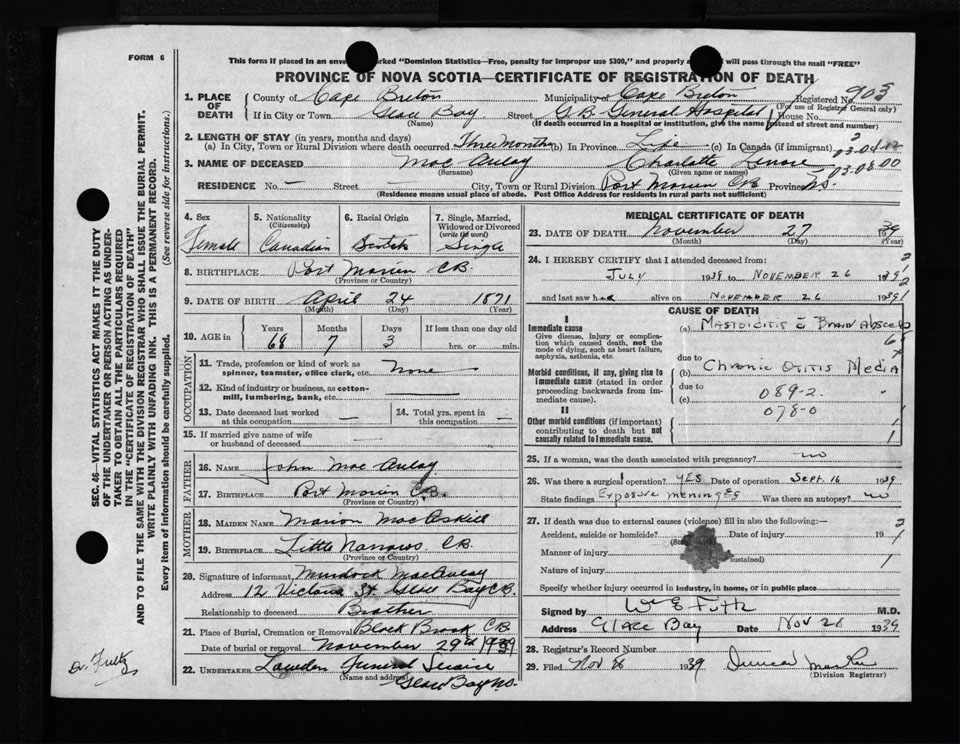 FORM 6
This form if placed in an enve ked "Dominion Statistics—Free, penalty for improper use $300," and properly a will pass through the mail "FREE"
PROVINCE OF NOVA SCOTIA—CERTIFICATE OF REGISTRATION OF DEATH
1. PLACE OF DEATH
County of Cape Breton Municipality of Cape Breton Registered No. 903
(For use of Registrar General only)
If in City or Town Glace Bay Street C.B. General Hospital House No.
(Name) (If death occurred in a hospital or institution, give the name instead of street and number)
2. LENGTH OF STAY (in years, months and days)
(a) In City, Town or Rural Division where death occurred Three months (b) In Province Life (c) In Canada (if immigrant)
03-04-12
03-08-00
3. NAME OF DECEASED Mac Aulay Charlotte Lenore
(Surname) (Given name or names)
RESIDENCE No. — Street City, Town or Rural Division Port Morien CB Province N.S.
(Residence means usual place of abode. Post Office Address for residents in rural parts not sufficient)
SEC. 46—VITAL STATISTICS ACT MAKES IT THE DUTY
OF THE UNDERTAKER OR PERSON ACTING AS UNDER-
TAKER TO OBTAIN ALL THE PARTICULARS REQUIRED
IN THE "CERTIFICATE OF REGISTRATION OF DEATH"
AND TO FILE THE SAME WITH THE DIVISION REGISTRAR WHO SHALL ISSUE THE BURIAL PERMIT.
WRITE PLAINLY WITH UNFADING INK. THIS IS A PERMANENT RECORD.
Every item of information should be carefully supplied. (See reverse side for instructions.)
4. Sex
Female
5. Nationality
(Citizenship)
Canadian
6. Racial Origin
Scotch
7. Single, Married,
Widowed or Divorced
(write the word)
Single
8. BIRTHPLACE Port Morien CB.
(Province or Country)
9. DATE OF BIRTH April 24 1871
(Month) (Day) (Year)
10. AGE in
Years Months Days If less than one day old
68 7 3 hrs. or min.
OCCUPATION
11. Trade, profession or kind of work as
spinner, teamster, office clerk, etc. None
12. Kind of industry or business, as cotton-
mill, lumbering, bank, etc.
13. Date deceased last worked
at this occupation —
14. Total yrs. spent in
this occupation —
15. If married give name of wife
or husband of deceased —
FATHER
16. NAME John Mac Aulay
17. BIRTHPLACE Port Morien C.B.
(Province or Country)
MOTHER
18. MAIDEN NAME Marion MacAskill
19. BIRTHPLACE Little Narrows CB.
(Province or Country)
20. Signature of informant Murdock MacAulay
Address 12 Victoria St. Glace Bay C.B.
Relationship to deceased Brother
21. Place of Burial, Cremation or Removal Black Brook CB
Date of burial or removal November 29th 1939
22. UNDERTAKER Lawden Funeral Service
(Name and address) Glace Bay N.S.
Dr. Fultz
MEDICAL CERTIFICATE OF DEATH
23. DATE OF DEATH November 27 1939
(Month) (Day) (Year)
24. I HEREBY CERTIFY that I attended deceased from:
JULY 1939 to NOVEMBER 26 1939
and last saw her alive on NOVEMBER 26 1939
CAUSE OF DEATH
I
Immediate cause
Give disease, injury or compli-
cation which caused death, not the
mode of dying, such as heart failure,
asphyxia, asthenia, etc.
(a) MASTOIDITIS c̄ BRAIN ABSCESS
due to
Morbid conditions, if any, giving rise to
immediate cause (stated in order
proceeding backwards from im-
mediate cause).
(b) Chronic Otitis Media
due to
(c) 089-2
078-0
II
Other morbid conditions (if important)
contributing to death but not
causally related to immediate cause.
25. If a woman, was the death associated with pregnancy? no
26. Was there a surgical operation? yes Date of operation Sept. 16 1939
State findings Exposure meninges Was there an autopsy? no
27. If death was due to external causes (violence) fill in also the following:—
Accident, suicide or homicide? Date of injury 19
Manner of injury sustained)
Nature of injury
Specify whether injury occurred in industry, in home, or in public place
Signed by M.D.
Address Glace Bay Date Nov 28 1939
28. Registrar's Record Number
29. Filed Nov 1939 Duncan
(Division Registrar)